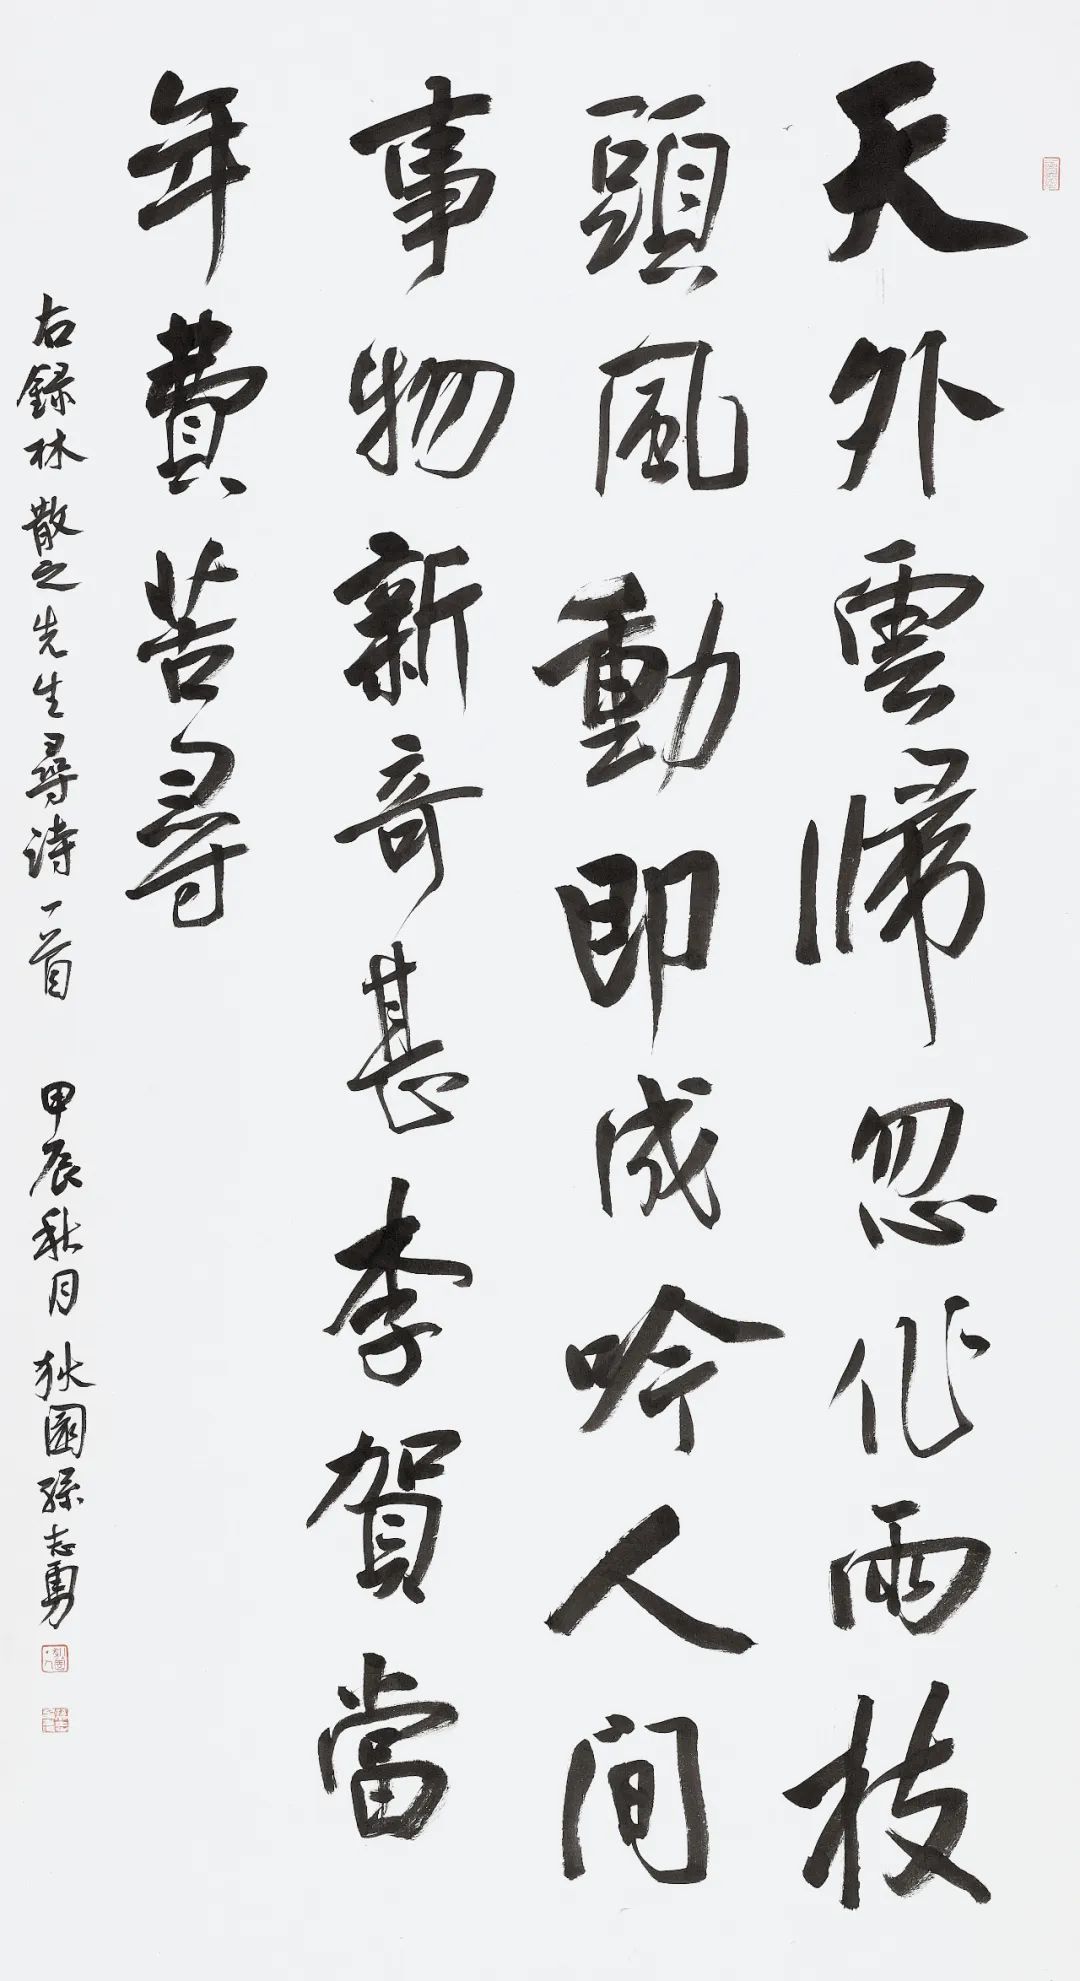 天外雲歸忽作雨枝
頭風動即成吟人間
事物新奇甚李賀當
年費苦尋
右錄林散之先生尋詩一首 甲辰秋月 狄園孫志勇